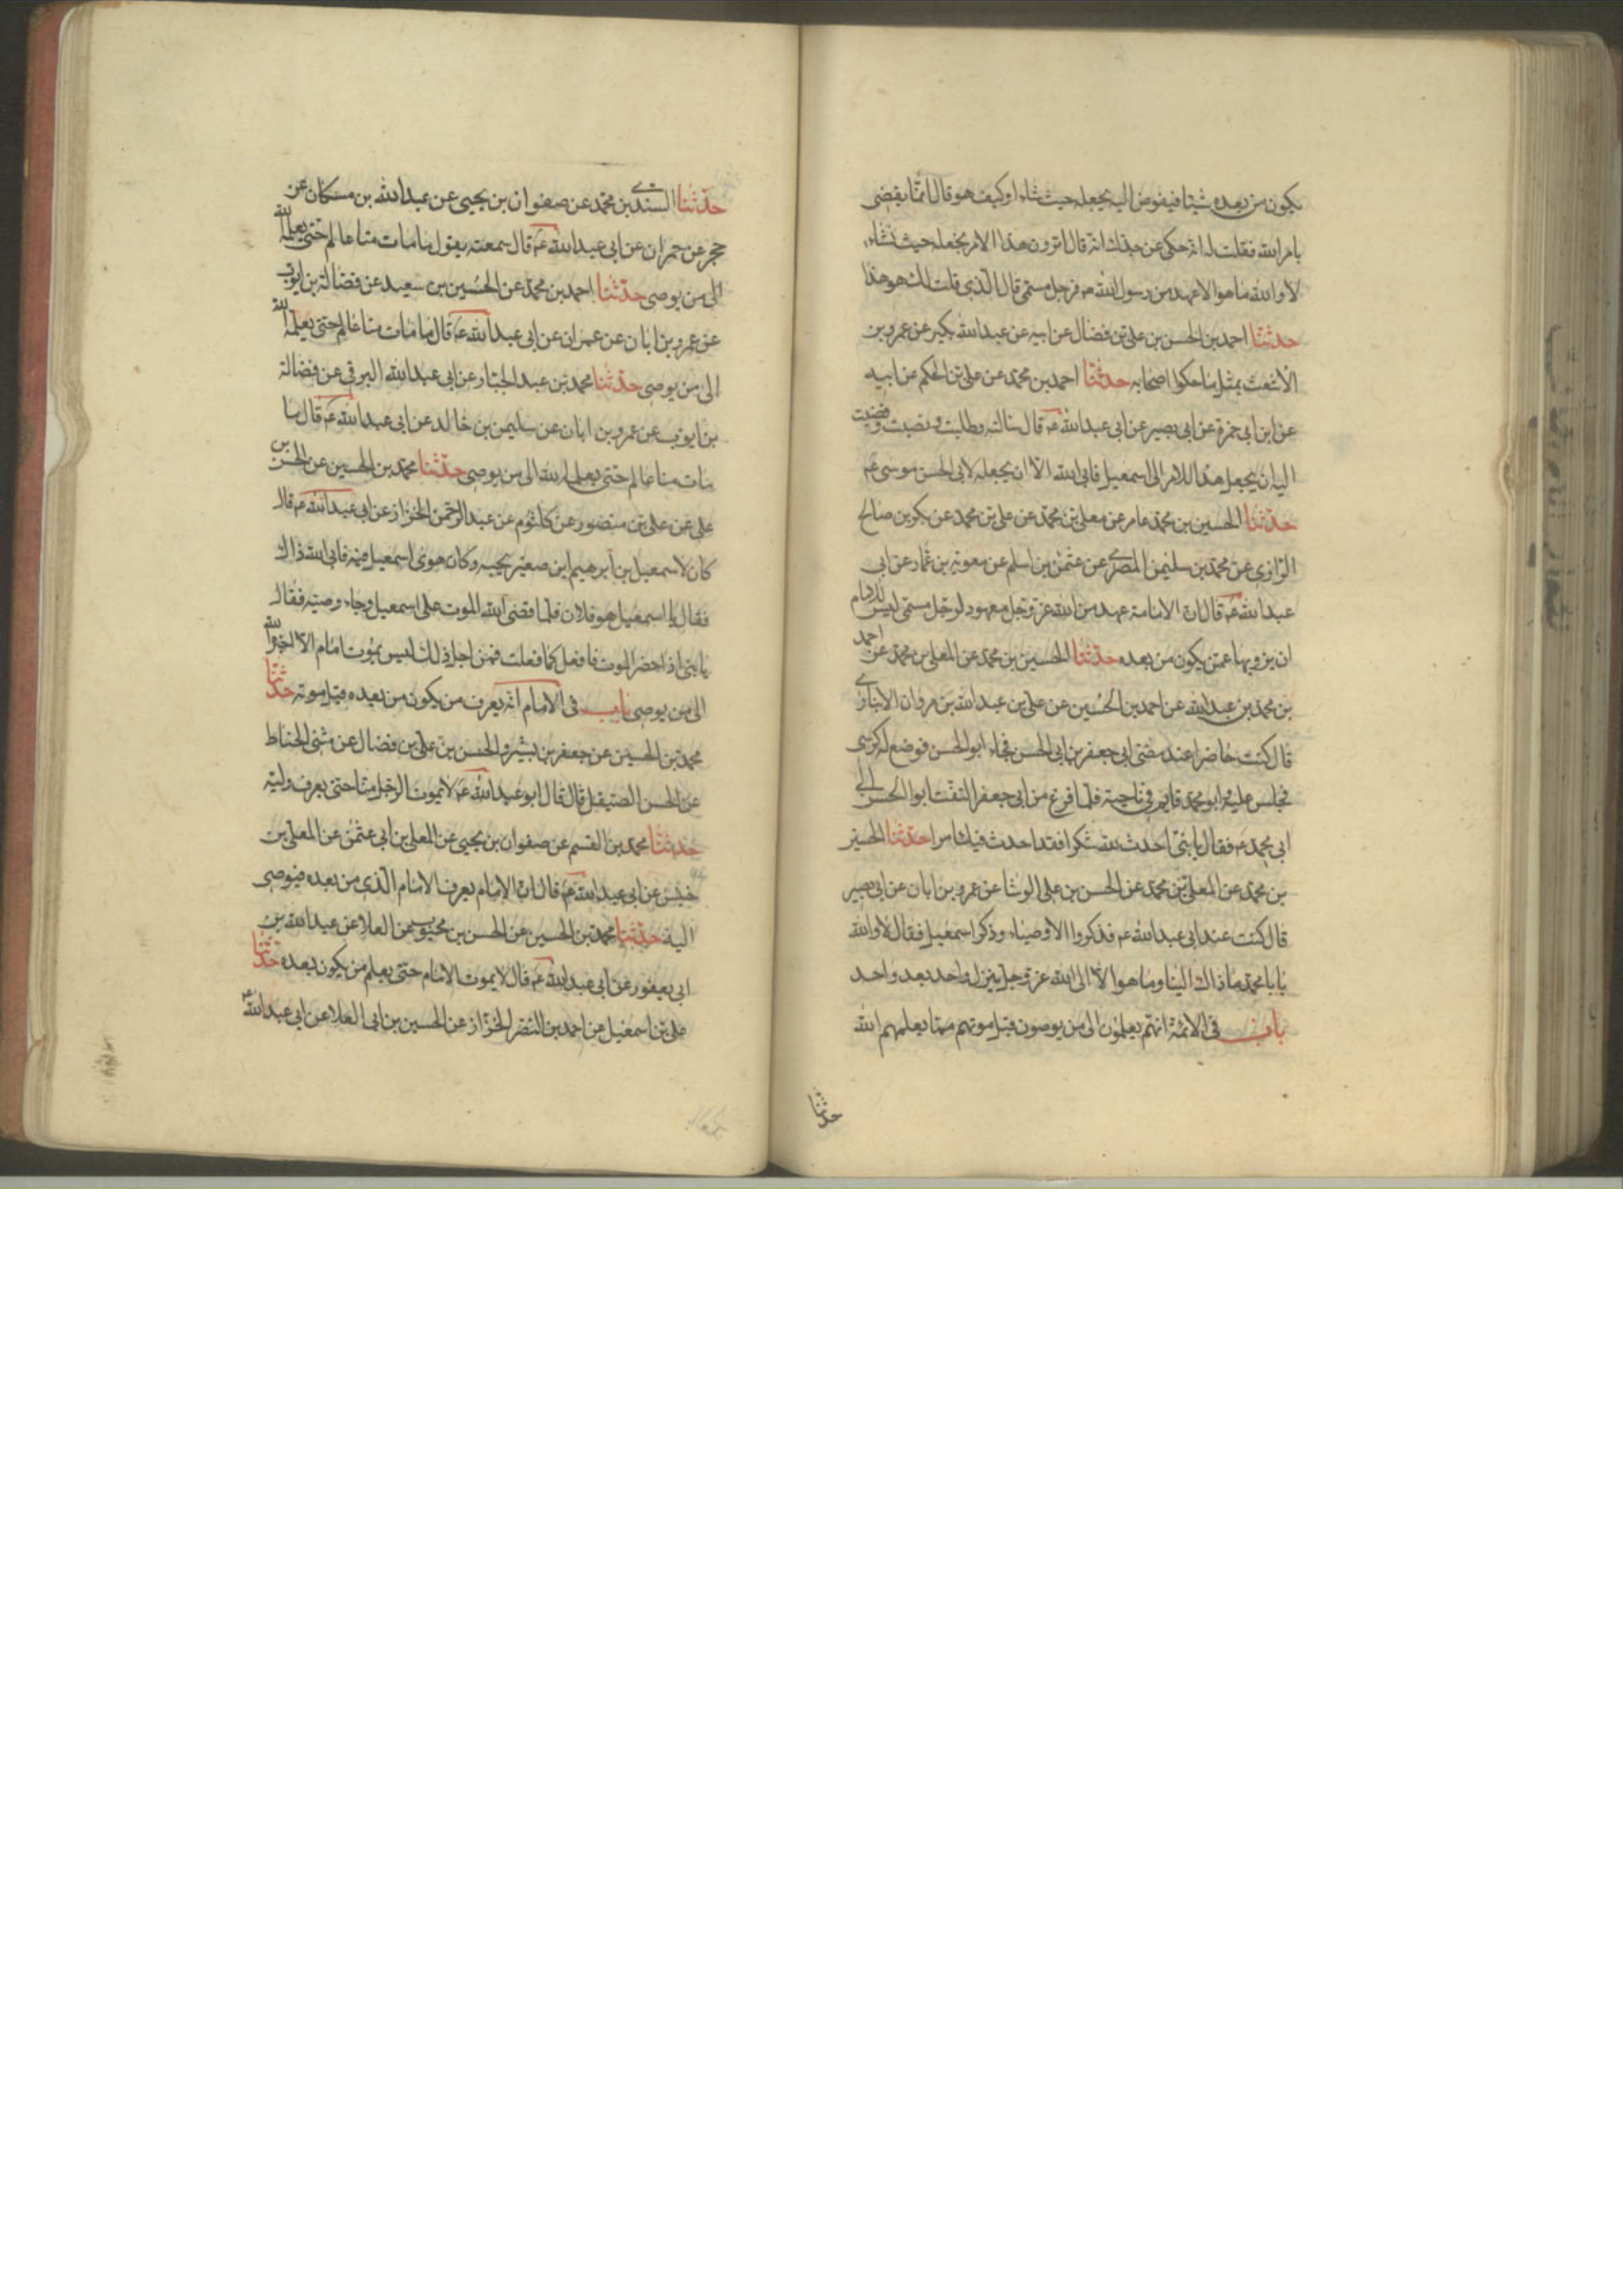 يكون من بعده شيئا فيفوض اليه يجعله حيث شاء او كيف هو قال انما يقضى
بامر الله فقلت له انه حكى عن جدك انه قال اترون هذا الامر نجعله حيث نشاء
لا والله ما هو الا عهد من رسول الله ص فرجل مسمى قال الذى قلت لك هو هذا
حدثنا احمد بن الحسن بن على بن فضال عن ابيه عن عبد الله بكير عن عمرو بن
الاشعث بمثل ما حكوا اصحابه حدثنا احمد بن محمد عن على بن الحكم عن ابيه
عن ابن ابى حمزة عن ابى بصير عن ابى عبد الله عم قال سالته وطلبت ونصبت وقضيت
اليه ان يجعل هذا الامر الى اسمعيل فابى الله الا ان يجعله لابى الحسن موسى عم
حدثنا الحسين بن محمد عامر عن معلى بن محمد عن على بن محمد عن بكر بن صالح
الرازى عن محمد بن سليمن المصرى عن عثمن بن اسلم عن معوية بن عمار عن ابى
عبد الله عم قال ان الامامة عهد من الله عز وجل معهود لرجل مسمى ليس للامام
ان يزويها عمن يكون من بعده حدثنا الحسين بن محمد عن المعلى بن محمد عن احمد
بن محمد بن عبد الله عن احمد بن الحسين عن على بن عبد الله بن مروان الانبارى
قال كنت حاضرا عند مضى ابى جعفر بن ابى الحسن فجاء ابو الحسن فوضع له كرسى
فجلس عليه وابو محمد قايم فى ناحية فلما فرغ من ابى جعفر التفت ابو الحسن الى
ابى محمد عم فقال يا بنى احدث لله شكرا فقد احدث فيك امرا حدثنا الحسين
بن محمد عن المعلى بن محمد عن الحسن بن على الوشا عن عمرو بن ابان عن ابى بصير
قال كنت عند ابى عبد الله عم فذكروا الاوصياء وذكر اسمعيل فقال لا والله
يا با محمد ما ذاك الينا وما هو الا الى الله عز وجل ينزل واحد بعد واحد
باب فى الائمة انهم يعلمون الى من يوصون قبل موتهم مما يعلمهم الله
حدثنا
حدثنا السندى بن محمد عن صفوان بن يحيى عن عبد الله بن مسكان عن
حجر عن حمران عن ابى عبد الله عم قال سمعته يقول ما مات منا عالم حتى يعلمه الله
الى من يوصى حدثنا احمد بن محمد عن الحسين بن سعيد عن فضالة بن ايوب
عن عمرو بن ابان عن عمران عن ابى عبد الله عم قال ما مات منا عالم حتى يعلمه الله
الى من يوصى حدثنا محمد بن عبد الجبار عن ابى عبد الله البرقى عن فضالة
بن ايوب عن عمرو بن ابان عن سليمن بن خالد عن ابى عبد الله عم قال ما
مات منا عالم حتى يعلمه الله الى من يوصى حدثنا محمد بن الحسين عن الحسن بن
على عن على بن منصور عن كلثوم عن عبد الرحمن الخزاز عن ابى عبد الله عم قال
كان لاسمعيل بن ابرهيم ابن صغير يحبه وكان هوى اسمعيل فيه فابى الله ذلك
فقال يا اسمعيل هو فلان فلما قضى الله الموت على اسمعيل وجاء وصيه فقال
يا بنى اذا حضر الموت فافعل كما فعلت فمن اجل ذلك ليس يموت امام الا اخبره الله
الى من يوصى باب فى الامام انه يعرف من يكون من بعده قبل موته حدثنا
محمد بن الحسين عن جعفر بن بشير والحسن بن على بن فضال عن مثنى الحناط
عن الحسن الصيقل قال قال ابو عبد الله عم لا يموت الرجل منا حتى يعرف وليه
حدثنا محمد بن القسم عن صفوان بن يحيى عن المعلى بن ابى عثمن عن المعلى بن
خنيس عن ابى عبد الله عم قال ان الامام يعرف الامام الذى من بعده فيوصى
اليه حدثنا محمد بن الحسين عن الحسن بن محبوب عن العلا عن عبد الله بن
ابى يعفور عن ابى عبد الله عم قال لا يموت الامام حتى يعلم من يكون بعده حدثنا
على بن اسمعيل عن احمد بن النضر الخزاز عن الحسين بن ابى العلا عن ابى عبد الله عم